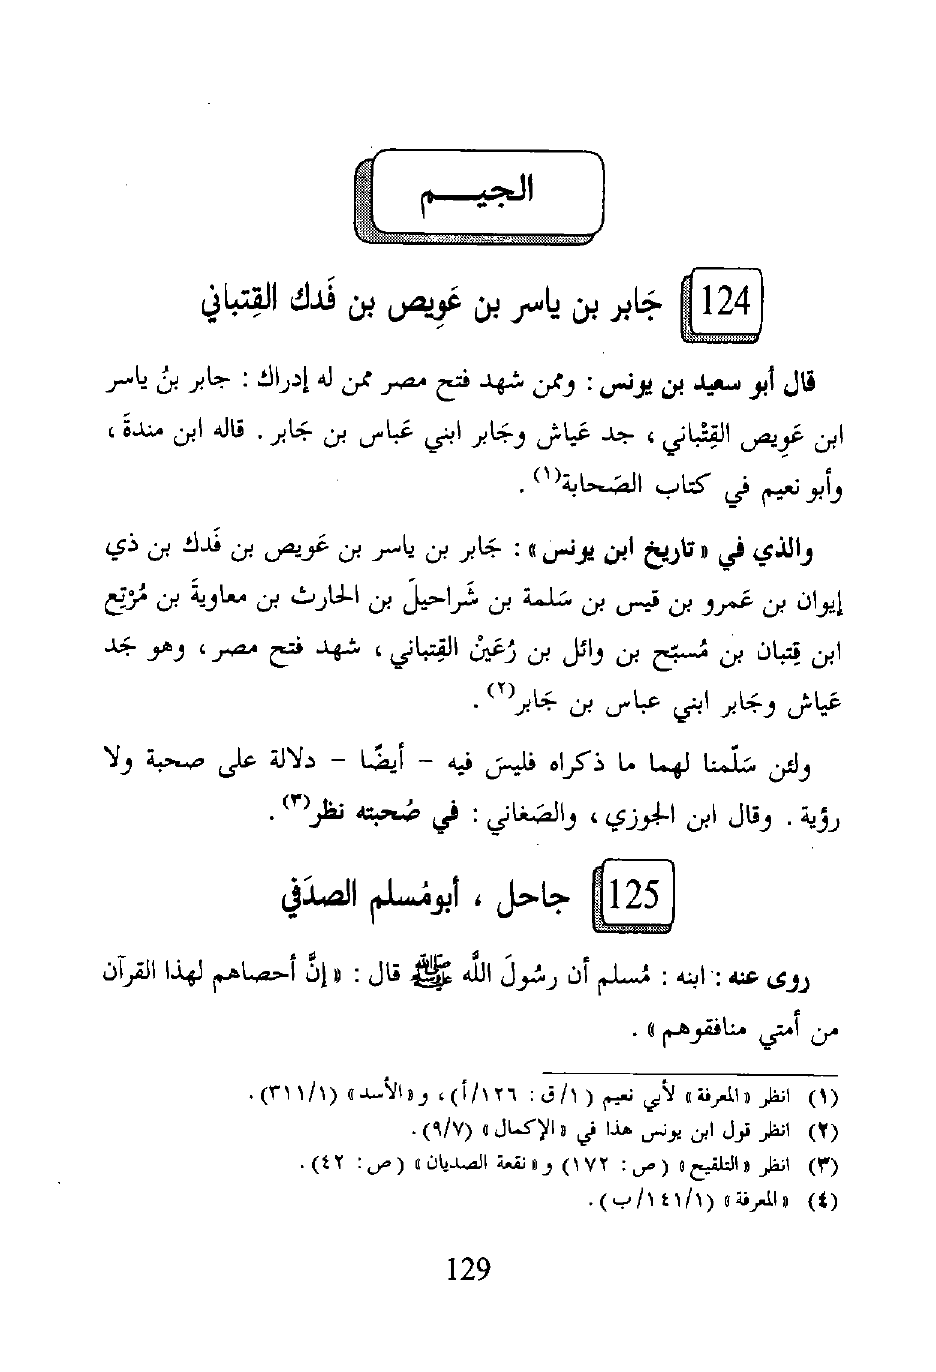 الجيـــم
124 جَابر بن ياسر بن عَوِيص بن فَدك القِتباني
قال أبو سعيد بن يونس : وممن شهد فتح مصر ممن له إدراك : جابر بنُ ياسر
ابن عَوِيص القِتْباني ، جد عَياش وجَابر ابني عَباس بن جَابر . قاله ابن مندةَ ،
وأبو نعيم في كتاب الصَحابة(١) .
والذي في « تاريخ ابن يونس» : جَابر بن ياسر بن عَويص بن فَدك بن ذي
إيوان بن عَمرو بن قيس بن سَلمة بن شَراحيلَ بن الحارث بن معاويةَ بن مُرْتِع
ابن قِتبان بن مُسبّح بن وائل بن رُعَيْنْ القِتباني ، شهد فتح مصر ، وهو جَد
عَياش وجَابر ابني عباس بن جَابر(٢) .
ولئن سَلّمنا لهما ما ذكراه فليسَ فيه – أيضًا – دلالة على صحبة ولا
رؤية . وقال ابن الجوزي ، والصَغاني : في صُحبته نظر(٣) .
125 جاحل ، أبومُسلم الصدَفي
روى عنه : ابنه : مُسلم أن رسُولَ اللَّه ﷺ قال : « إنَّ أحصاهم لهذا القرآن
من أمتي منافقوهم » .
(١) انظر « المعرفة » لأبي نعيم ( ١/ ق : ١٢٦/أ) ، و « الأسد » (٣١١/١).
(٢) انظر قول ابن يونس هذا في « الإكمال » (٩/٧).
(٣) انظر « التلقيح » ( ص : ١٧٢) و « نقعة الصديان » ( ص : ٤٢).
(٤) « المعرفة » (١٤١/١/ب).
129